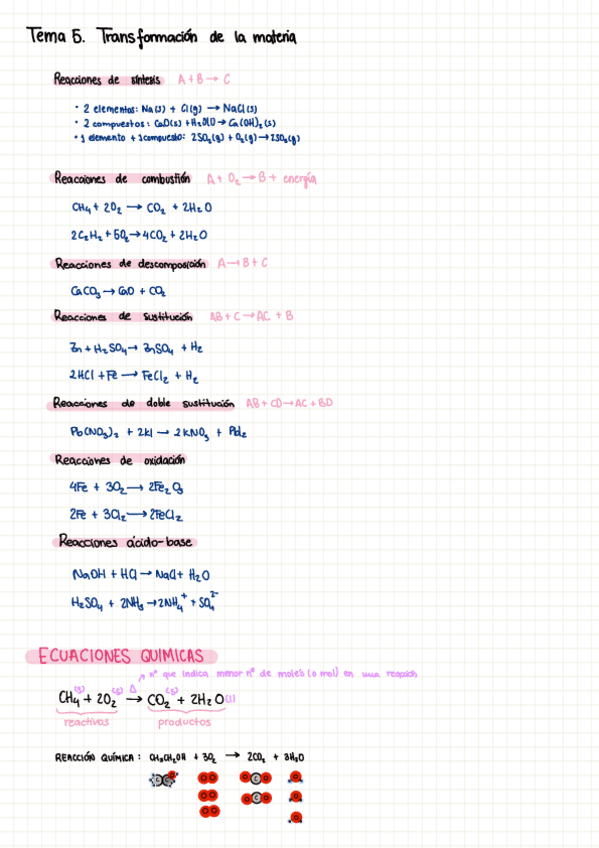 Tema 5. Transformación de la materia
Reacciones de síntesis A + B → C
• 2 elementos: Na(s) + Cl(g) → NaCl(s)
• 2 compuestos: CaO(s) + H₂O(l) → Ca(OH)₂(s)
• 1 elemento + 1 compuesto: 2SO₂(g) + O₂(g) → 2SO₃(g)
Reacciones de combustión A + O₂ → B + energía
CH₄ + 2O₂ → CO₂ + 2H₂O
2C₂H₂ + 5O₂ → 4CO₂ + 2H₂O
Reacciones de descomposición A → B + C
CaCO₃ → CaO + CO₂
Reacciones de sustitución AB + C → AC + B
Zn + H₂SO₄ → ZnSO₄ + H₂
2HCl + Fe → FeCl₂ + H₂
Reacciones de doble sustitución AB + CD → AC + BD
Pb(NO₃)₂ + 2kI → 2KNO₃ + PbI₂
Reacciones de oxidación
4Fe + 3O₂ → 2Fe₂O₃
2Fe + 3Cl₂ → 2FeCl₂
Reacciones ácido-base
NaOH + HCl → NaCl + H₂O
H₂SO₄ + 2NH₃ → 2NH₄⁺ + SO₄²⁻
ECUACIONES QUIMICAS
nº que indica menor nº de moles (o mol) en una reacción
CH₄(g) + 2O₂(g) Δ→ CO₂(g) + 2H₂O(l)
reactivos productos
REACCIÓN QUÍMICA: CH₃CH₂OH + 3O₂ → 2CO₂ + 3H₂O